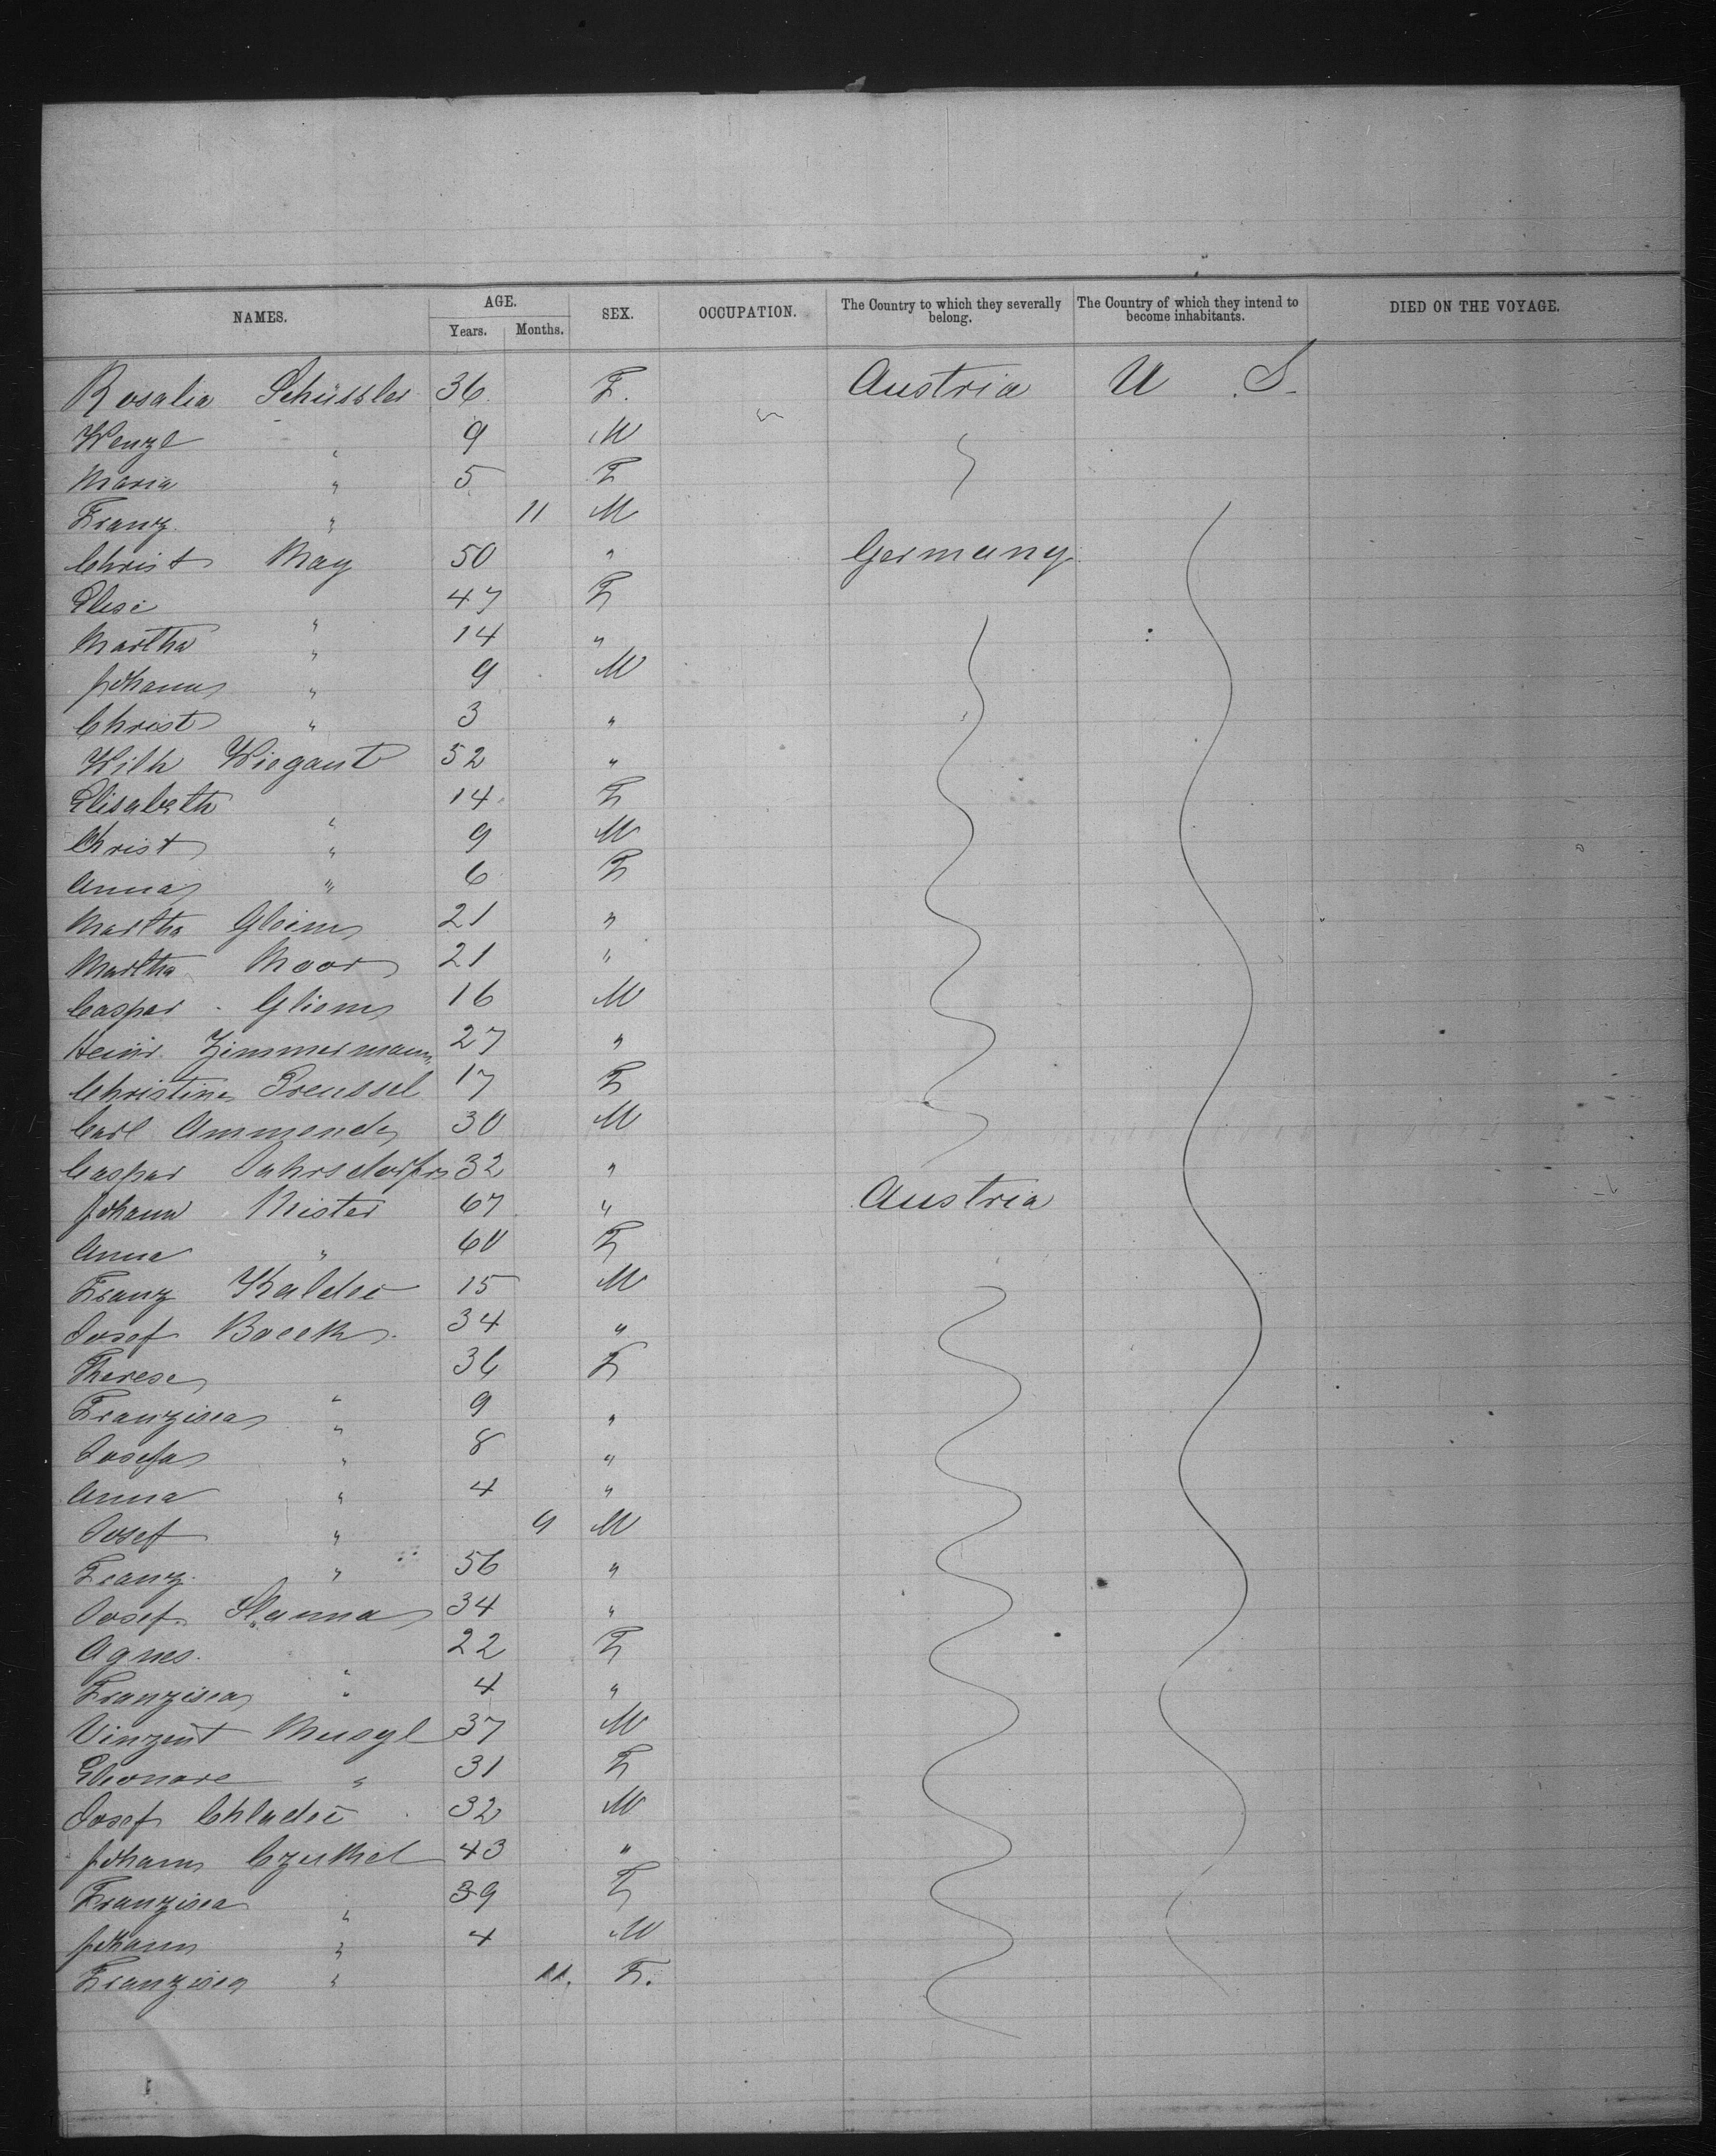 NAMES. AGE. SEX. OCCUPATION. The Country to which they severally belong. The Country of which they intend to become inhabitants. DIED ON THE VOYAGE.
Years. Months.
Rosalia Schüssler 36 F. Austria U S.
Wenzl " 9 M
Maria " 5 F
Franz " 11 M
Christ May 50 " Germany
Elise " 47 F
Martha " 14 "
Johann " 9 M
Christ " 3 "
Wilh Wiegant 52 "
Elisabeth " 14 F
Christ " 9 M
Anna " 6 F
Martha Gleim 21 "
Martha Moor 21 "
Caspar Gliem 16 M
Heinr. Zimmermann 27 "
Christine Preussel 17 F
Carl Ammende 30 M
Caspar 32 "
Johann Mister 67 " Austria
Anna " 60 F
Franz Kaldec 15 M
Josef Boeck 34 "
Therese " 36 F
Franzisca " 9 "
Josefa " 8 "
Anna " 4 "
Josef " 9 M
Franz " 56 "
Josef Slauma 34 "
Agnes " 22 F
Franzisca " 4 "
Vinzent Musyl 37 M
Eleonore " 31 F
Josef Chladec 32 M
Johann 43 "
Franzisca " 39 F
Johann " 4 M
Franzisca " 11. F.